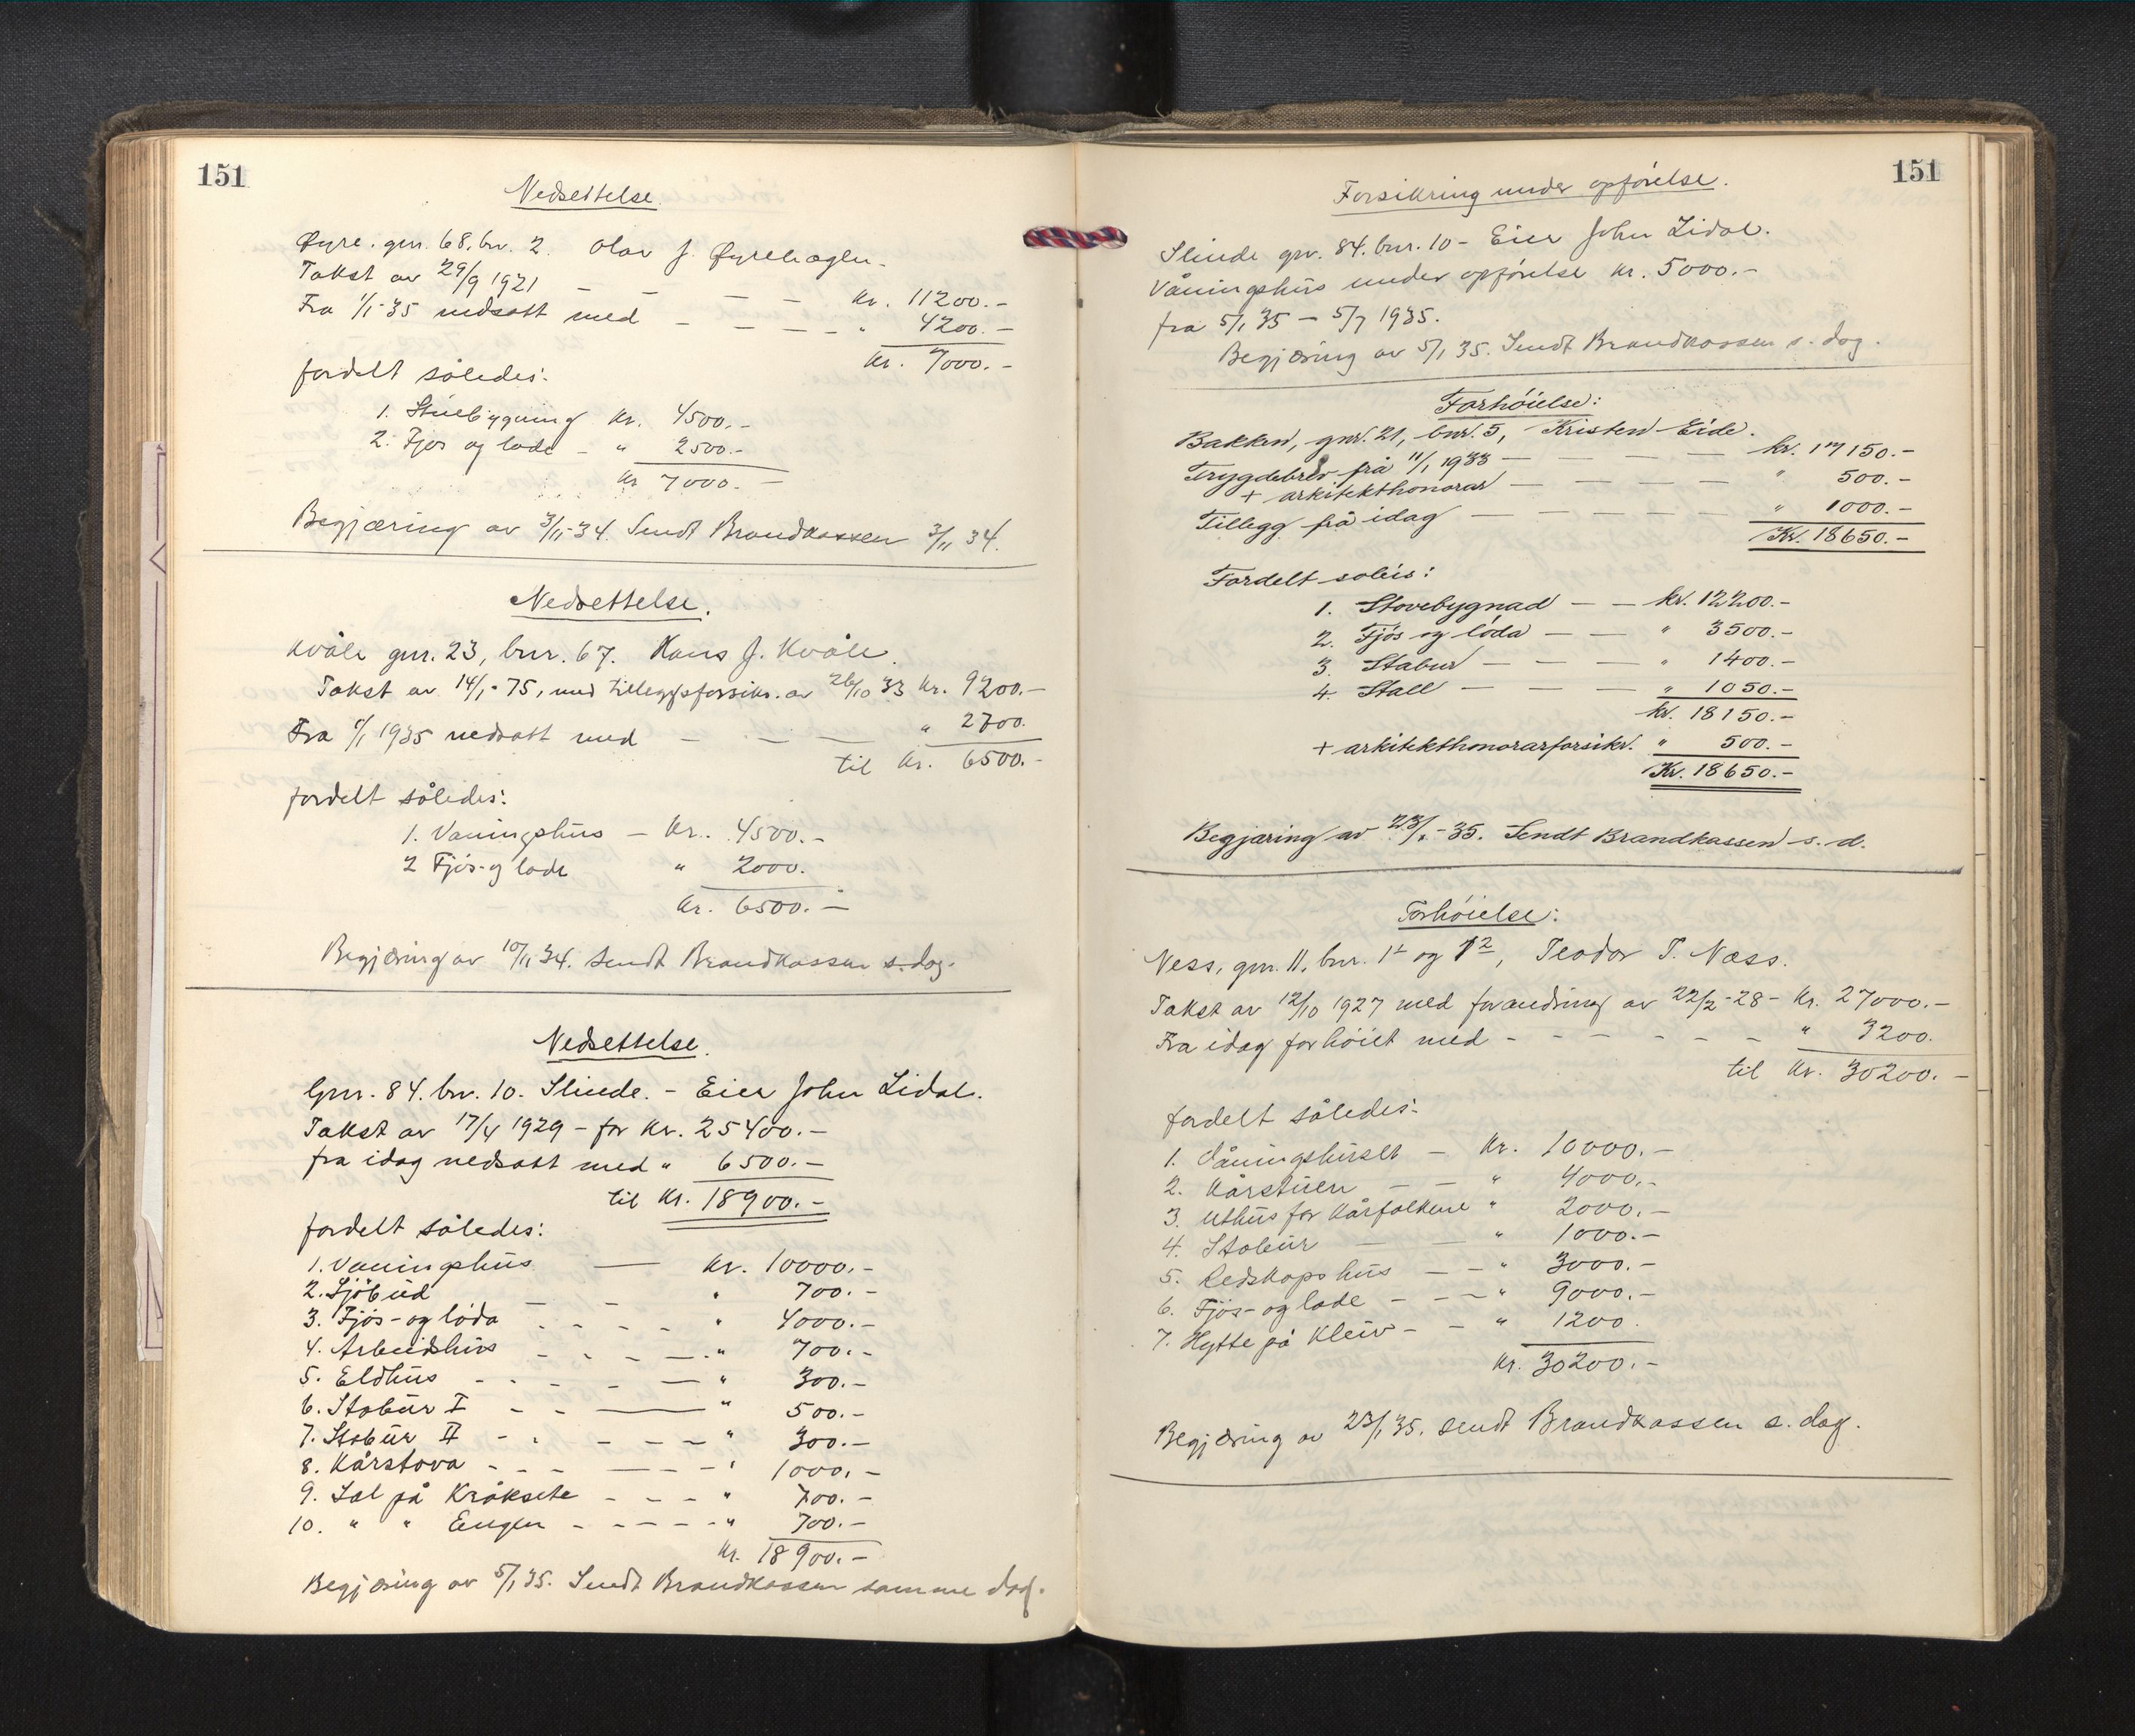 151
Nedsettelse.
Øyre. gnr. 68, bnr. 2. Olav J. Øyrehagen.
Takst av 29/9 1921 – – – – kr. 11200.–
Fra 1/1-35 nedsatt med – – – – " 4200.–
kr. 7000.–
fordelt således:
1. Stuebygning kr. 4500.–
2. Fjøs og lade – " 2500.–
kr 7000.–
Begjæring av 3/11-34. Sendt Brandkassen 3/11 34.
Nedsettelse.
Kvåle gnr. 23, bnr. 67. Hans J. Kvåle.
Takst av 14/1-75, med tilleggsforsikr. av 26/10 33 kr. 9200.–
Fra 1/1 1935 nedsatt med – – – " 2700.
til kr. 6500.–
fordelt således:
1. Vaningshus – kr. 4500.–
2 Fjøs- og lade " 2000.
kr. 6500.–
Begjæring av 10/11 34. Sendt Brandkassen s. dag.
Nedsettelse.
Gnr. 84. bnr. 10. Slinde. – Eier John Lidal.
Takst av 17/4 1929 – for kr. 25400.–
fra idag nedsatt med " 6500.–
til kr. 18900.–
fordelt således:
1. Vaningshus — kr. 10000.–
2. Sjøbud – – " 700.–
3. Fjøs- og løda - - - - " 4000.–
4. Arbeidshus - - - — " 700.–
5. Eldhus - - - - — " 300.–
6. Stabur I - - — " 500.–
7. Stabur II - - – – – " 300.–
8. Kårstova - - - — – – " 1000.–
9. Sel på Kråksete - - - " 700.–
10. " " Engen - - - - - " 700.–
kr. 18900.–
Begjæring av 5/1 35. Sendt Brandkassen samme dag.
151
Forsikring under opførelse.
Slinde gnr. 84. bnr. 10 – Eier John Lidal.
Våningshus under opførelse kr. 5000.–
fra 5/1 35 – 5/7 1935.
Begjæring av 5/1 35. Sendt Brandkassen s. dag.
Forhøielse:
Bakken, gnr. 21, bnr. 5, Kristen Eide.
Trygdebrev frå 11/1 1933 – – – – kr. 17150.–
+ arkitekthonorar – – – – " 500.–
Tillegg frå idag – – – – " 1000.–
Kr. 18650.–
Fordelt soleis:
1. Stovebygnad – – kr. 12200.–
2. Fjøs og løda – – " 3500.–
3. Stabur – – – " 1400.–
4. Stall – – – " 1050.–
kr. 18150.–
+ arkitekthonorarforsikr. " 500.–
Kr. 18650.–
Begjæring av 23/1-35. Sendt Brandkassen s. d.
Forhøielse:
Ness, gnr. 11, bnr. 1 1 og 1 2, Teodor T. Næss.
Takst av 12/10 1927 med forandring av 22/2-28 – kr. 27000.–
Fra idag forhøiet med - - - - - - " 3200.
til kr. 30200.–
fordelt således:
1. Våningshuset – kr. 10000.–
2. Kårstuen – – " 4000.–
3. Uthus for kårfolkene " 2000.–
4. Stabur — — " 1000.–
5. Redskapshus – – " 3000.–
6. Fjøs- og lade - - – " 9000.–
7. Hytte på Kleiv – – " 1200.
kr. 30200.–
Begjæring av 23/1 35. sendt Brandkassen s. dag.